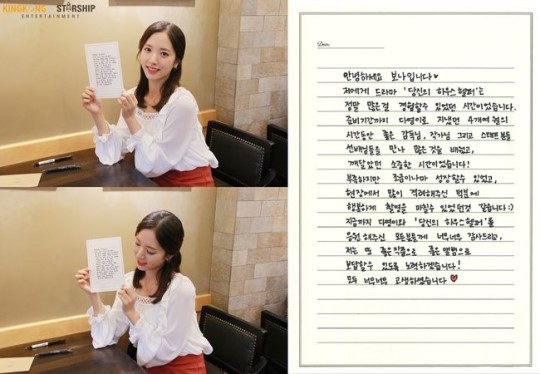 KINGKONG by STARSHIP
ENTERTAINMENT
안녕하세요 보나입니다♥
저에게 드라마 '당신의 하우스헬퍼'는
정말 많은걸 경험할수 있었던 시간이었습니다.
준비기간까지 다영이로 지냈던 4개여월의
시간동안 좋은 감독님, 작가님 그리고 스태프분들
선배님들을 만나 많은 것을 배웠고,
깨달았던 소중한 시간이었습니다!
부족하지만 조금이나마 성장할수 있었고,
현장에서 많이 격려해주신 덕분에
행복하게 촬영을 마칠수 있었던것 같습니다 :)
지금까지 다영이와 '당신의 하우스헬퍼'를
응원해주신 모든분들께 너무너무 감사드리고,
저는 또 좋은작품으로 좋은 앨범으로
보답할수 있도록 노력하겠습니다!
모두 너무너무 고생하셨습니다♥